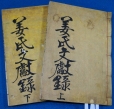 姜氏文獻錄 上
姜氏文獻錄 下